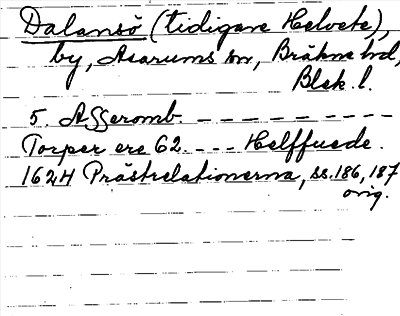 Dalansö (tidigare Helvete),
by, Asarums sn, Bräkne hd,
Blek. l.
5. Afferomb. – – – – – – – – –
Torper ere 62. – – – Helffuede.
1624 Prästrelationerna, ss. 186, 187
orig.